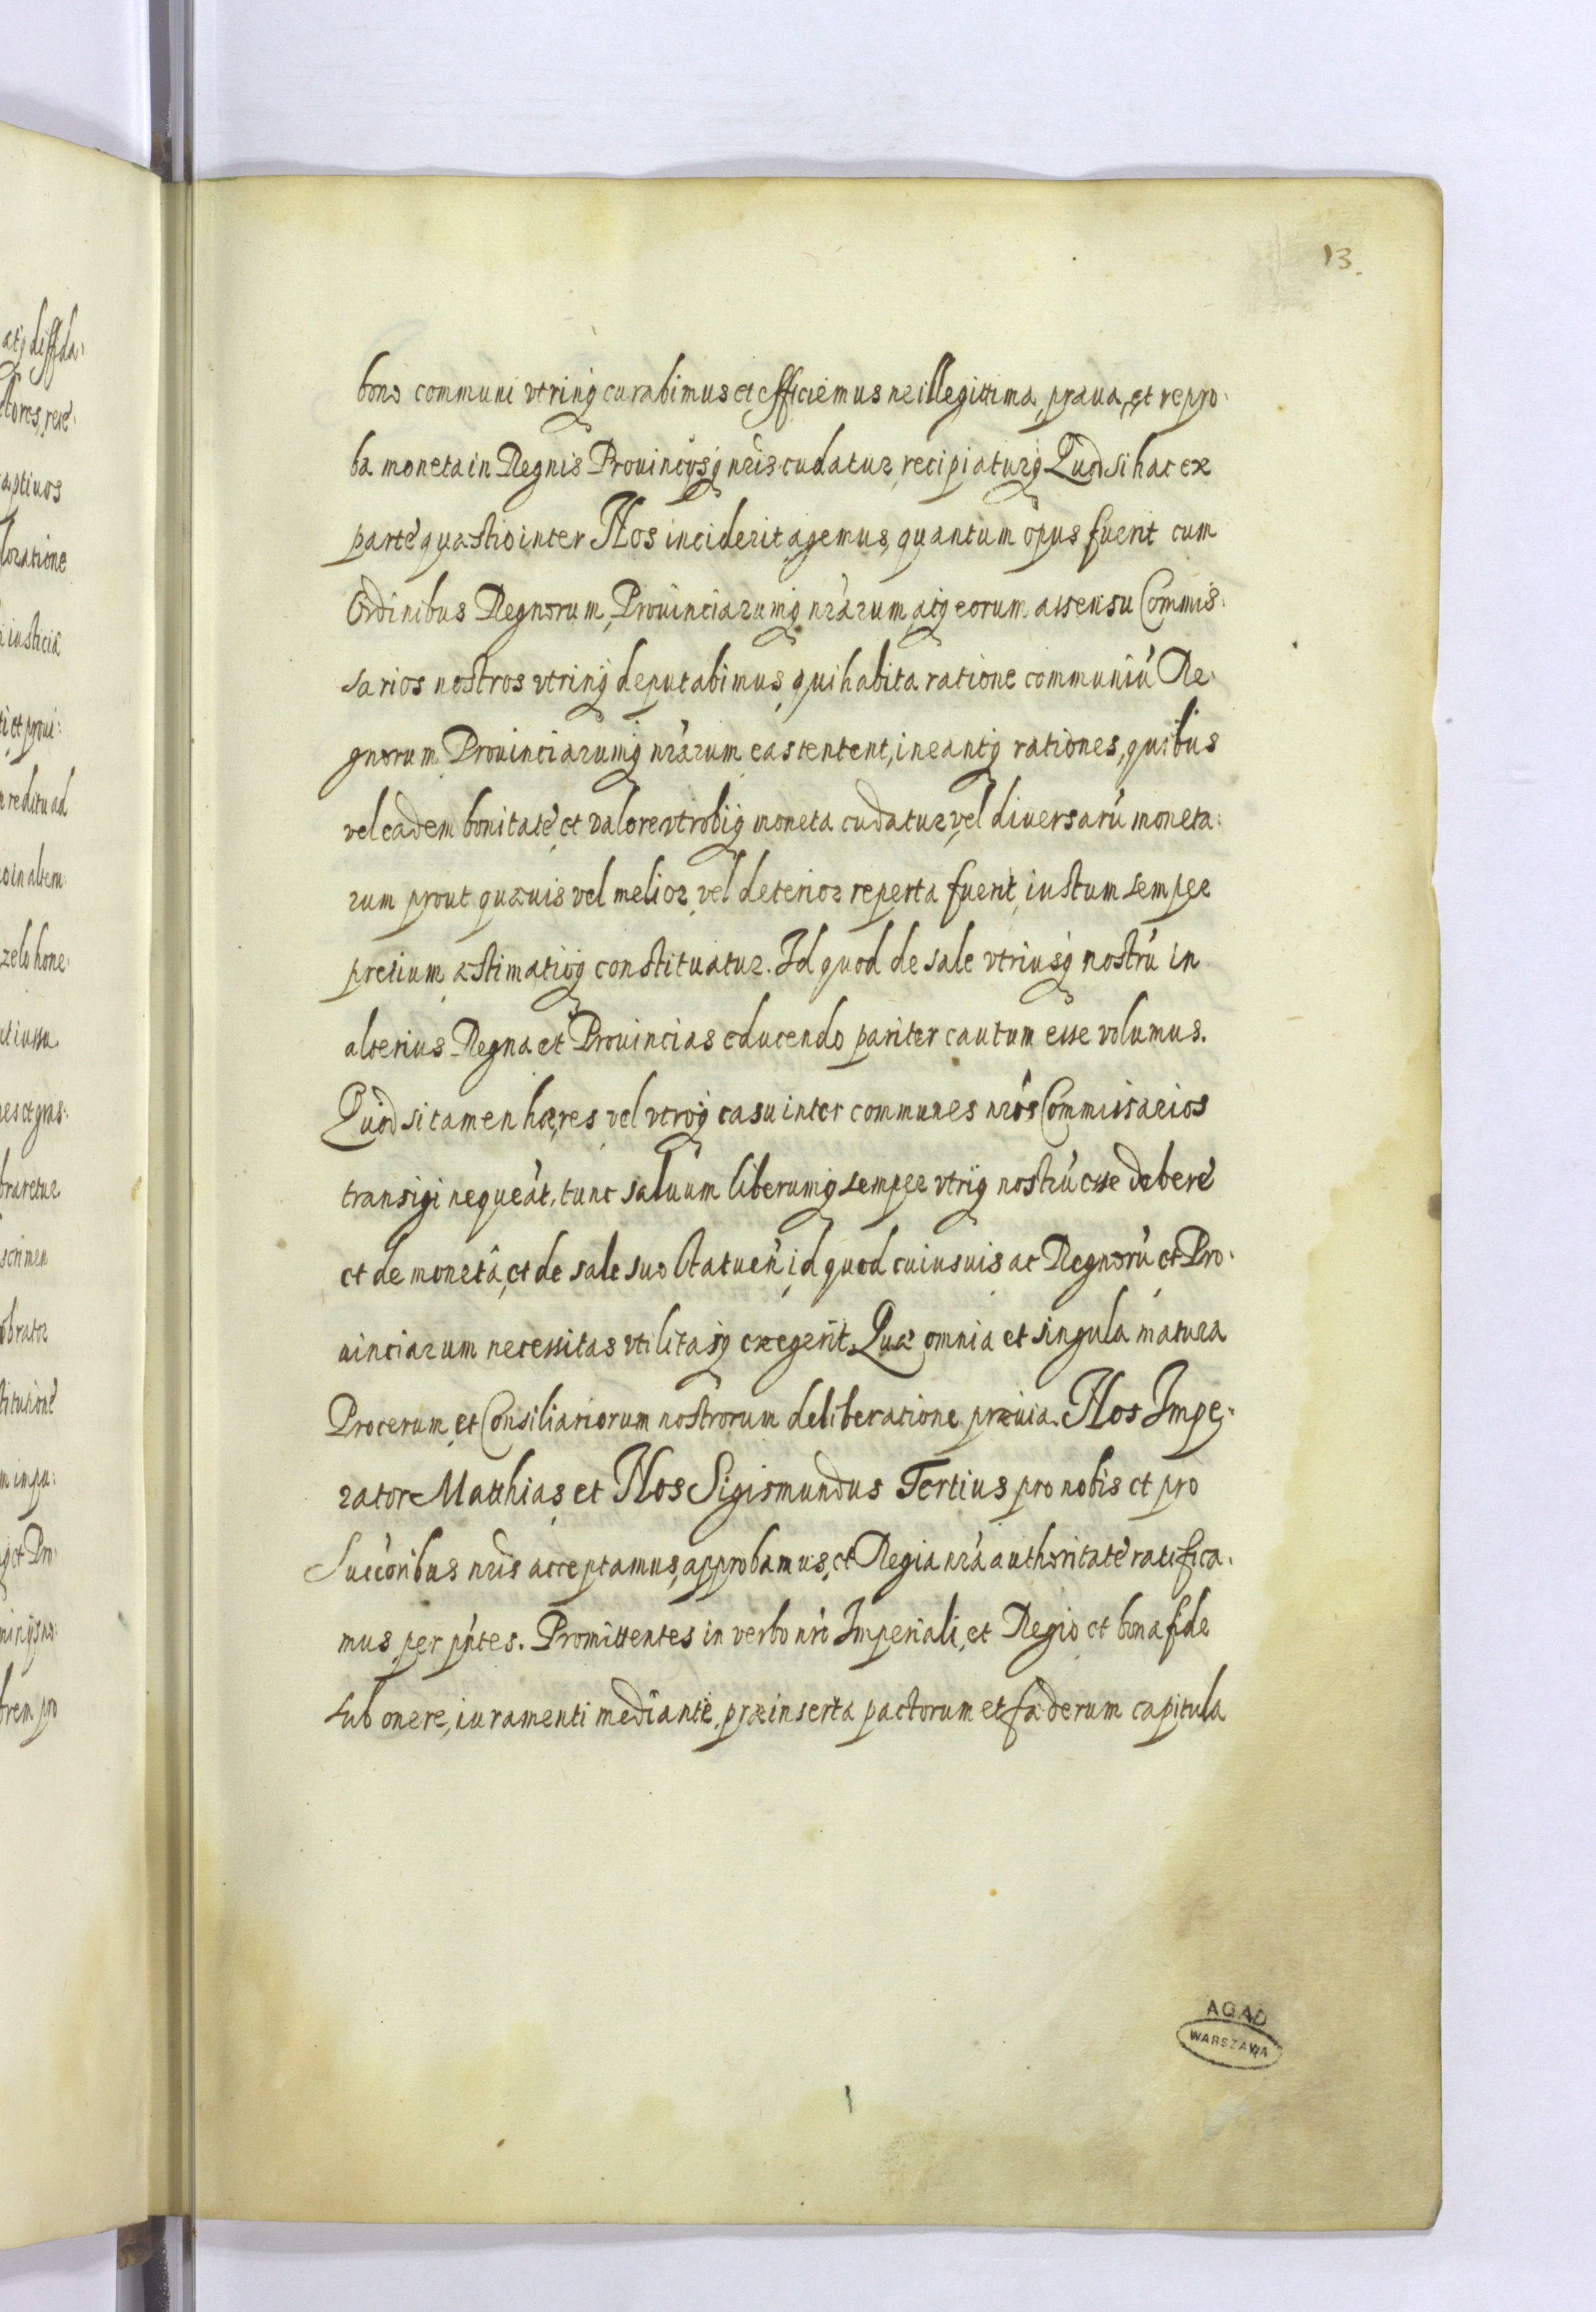 13.
bono communi vtrinq curabimus et efficiemus ne illegittima, praua, et repro:
ba moneta in Regnis Prouincijsq nris cudatur, recipiaturq Quod si hac ex
parte quæstio inter Nos inciderit agemus, quantum opus fuerit cum
Ordinibus Regnorum, Prouinciarumq nrarum, atq eorum assensu Commis:
sarios nostros vtrinq deputabimus, qui habita ratione communiũ Re:
gnorum Prouinciarumq nrarum eas tentent, ineantq rationes, quibus
vel eadem bonitate, et valore vtrobiq moneta cudatur, vel diuersarũ moneta:
rum prout quæuis vel melior, vel deterior reperta fuerit, iustum semper
precium æstimatioq constituatur. Id quod de sale vtriusq nostrũ in
alterius Regna et Prouincias educendo pariter cautum esse volumus.
Quod si tamen hæ, res vel vtroq casu inter communes nros Commissarios
transigi nequeat, tunc saluum liberumq semper vtriq nostrũ esse debere
et de moneta, et de sale suo statuen id quod cuiusuis ac Regnorũ et Pro:
uinciarum necessitas vtilitasq exegerit. Quæ omnia et singula matura
Procerum, et Consiliariorum nostrorum deliberatione præuia. Nos Impe:
rator Matthias et Nos Sigismundus Tertius pro nobis et pro
Succoribus nris acceptamus, approbamus, et Regia nra authoritate ratifica:
mus per pntes. Promittentes in verbo nro Imperiali, et Regio et bona fide
sub onere, iuramenti mediante, præinserta pactorum et fæderum capitula
AGAD
WARSZAWA